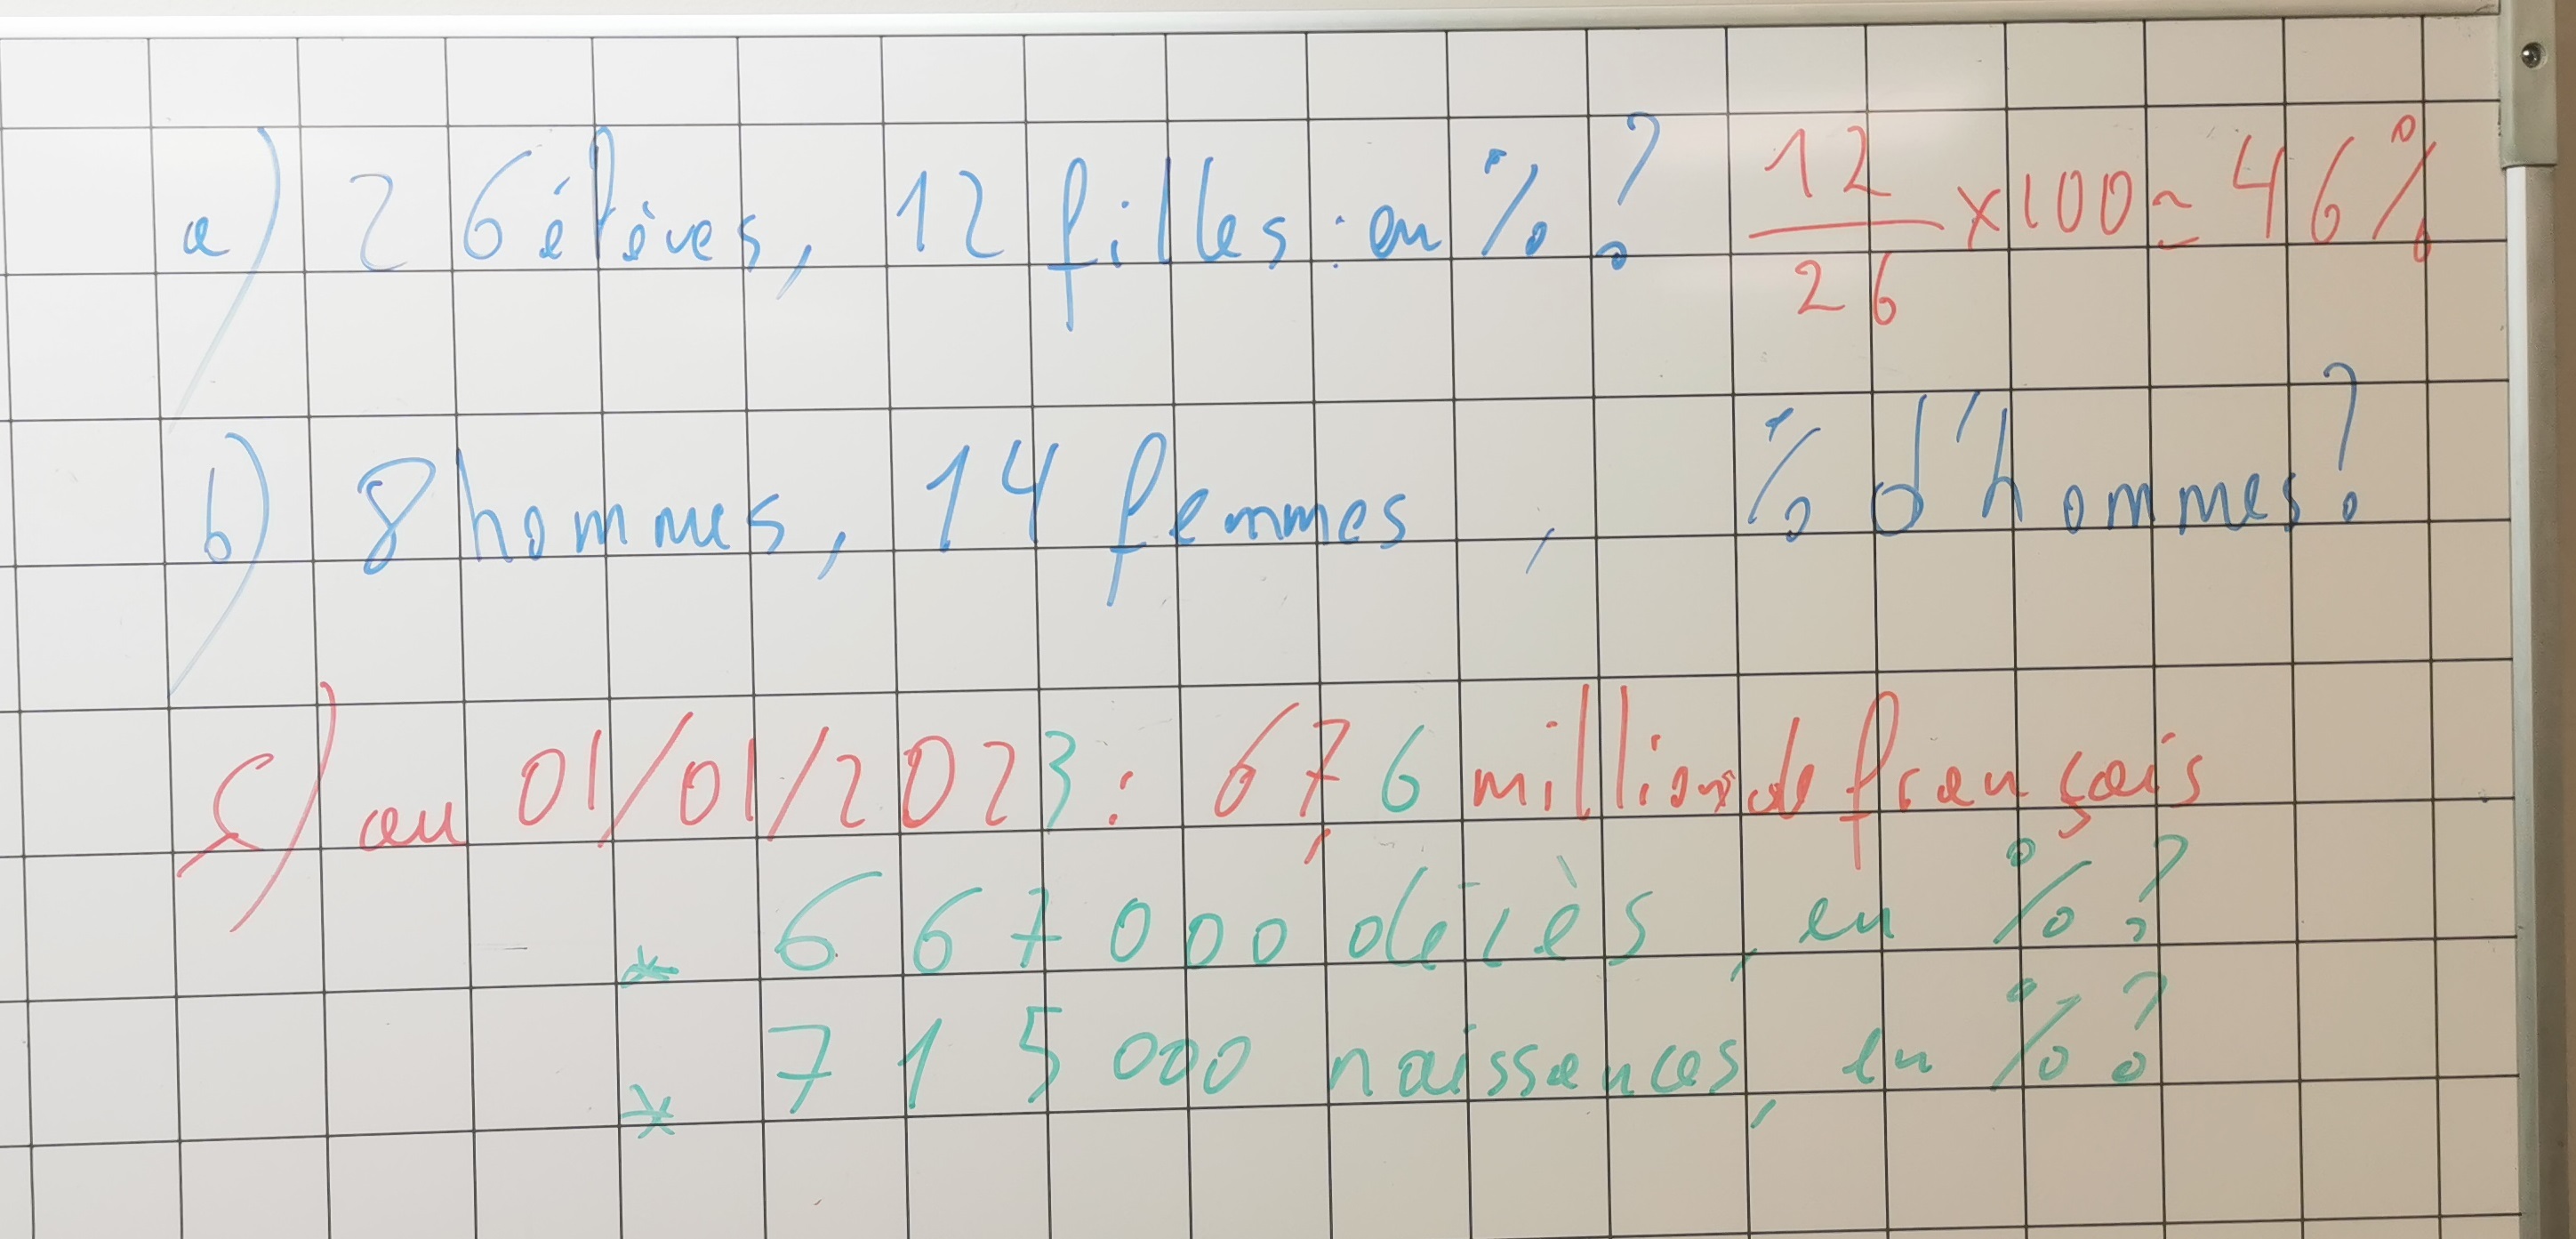 a) 26 élèves, 12 filles : en % ? 12/26 x 100 ≃ 46%
b) 8 hommes, 14 femmes, % d'hommes ?
c) au 01/01/2023 : 67,6 millions de français
* 667000 décès, en % ?
* 715000 naissances, en % ?